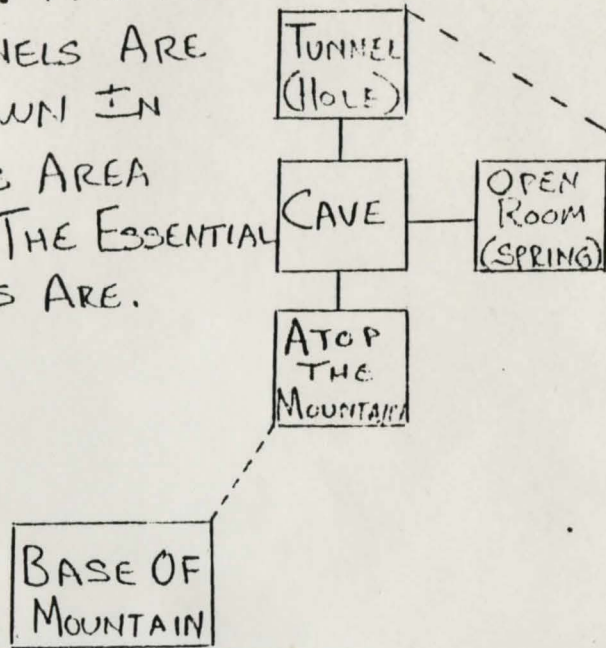 NELS ARE
WN IN
AREA
THE ESSENTIAL
S ARE.
TUNNEL
(HOLE)
CAVE
OPEN
ROOM
(SPRING)
ATOP
THE
MOUNTAIN
BASE OF
MOUNTAIN